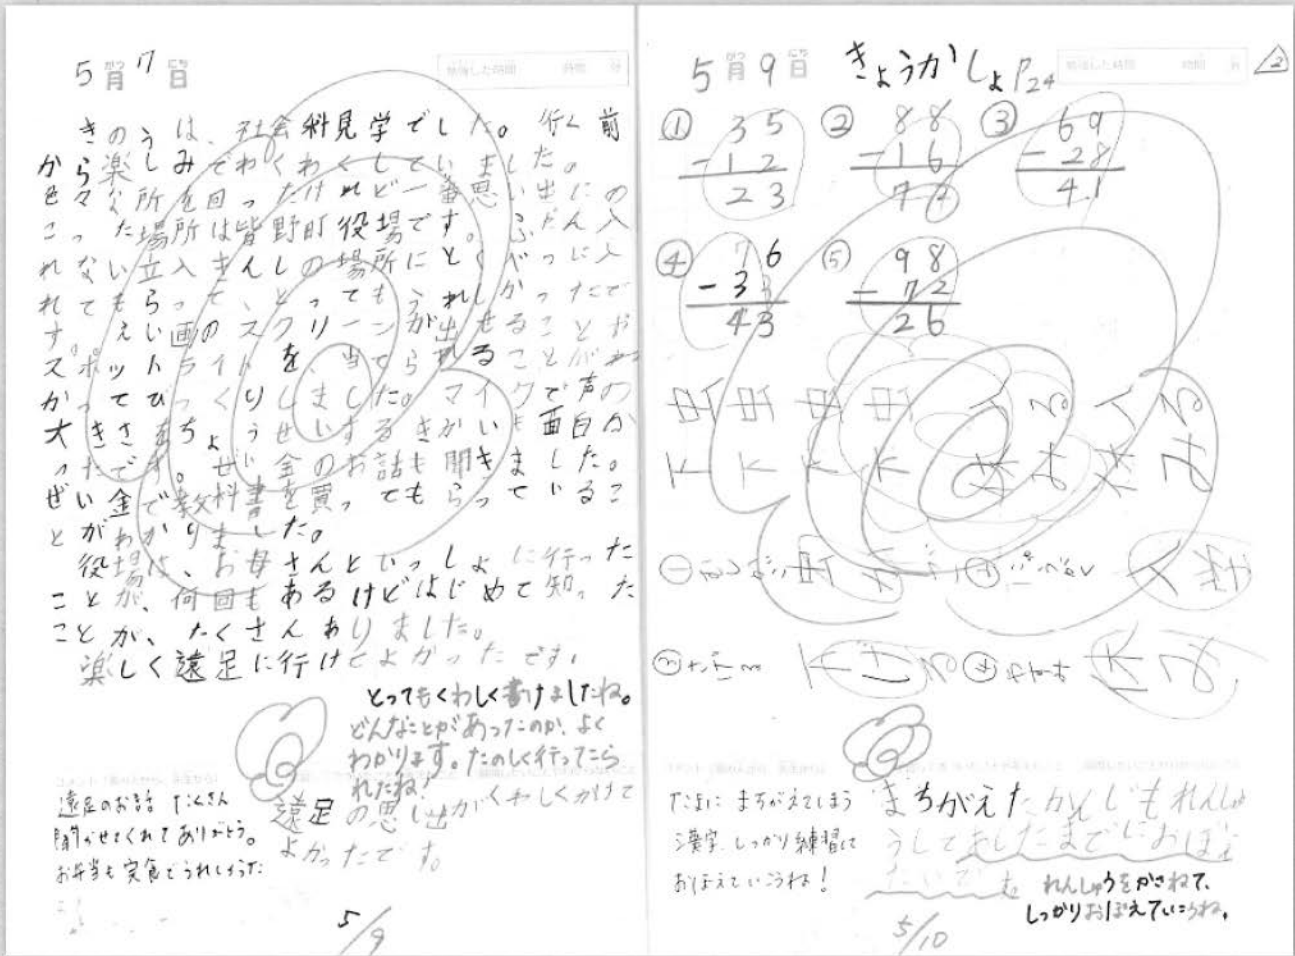 5月7日
勉強した時間 時間 分
きのうは、社会科見学でした。行く前
から楽しみでわくわくしていました。
色々な所を回ったけれど一番思い出にの
こった場所は皆野町役場です。ふだん入
れない立入きんしの場所にとくべつに入
れてもらって、とってもうれしかったで
す。えい画のスクリーンが出せることや
スポットライトを、当てられることがわ
かってびっくりしました。マイクで声の
大きさをちょうせいするきかいも面白か
ったです。ぜい金のお話も聞きました。
ぜい金で教科書を買ってもらっているこ
とがわかりました。
役場は、お母さんといっしょに行った
ことが、何回もあるけどはじめて知った
ことが、たくさんありました。
楽しく遠足に行けてよかったです。
とってもくわしく書けましたね。
どんなことがあったのか、よく
わかります。たのしく行ってこら
れたね!
遠足のお話 たくさん
聞かせてくれてありがとう。
お弁当も完食でうれしかった
遠足の思い出がくわしくかけて
よかったです。
5/9
5月9日 きょうかしょP24
勉強した時間 時間 分
① 35
-12
23
② 88
-16
72
③ 69
-28
41
④ 76
-33
43
⑤ 98
-72
26
虫 虫 虫 虫 入 る 入 る
下 下 下 下 休 み 休 み
①
②
③ 下げる
④ やすみ 休み
たまに まちがえてしまう
漢字 しっかり練習して
おぼえていこうね!
まちがえたかんじもれんしゅ
うしてあしたまでにおぼえ
たいです
れんしゅうをかさねて、
しっかりおぼえていこうね。
5/10